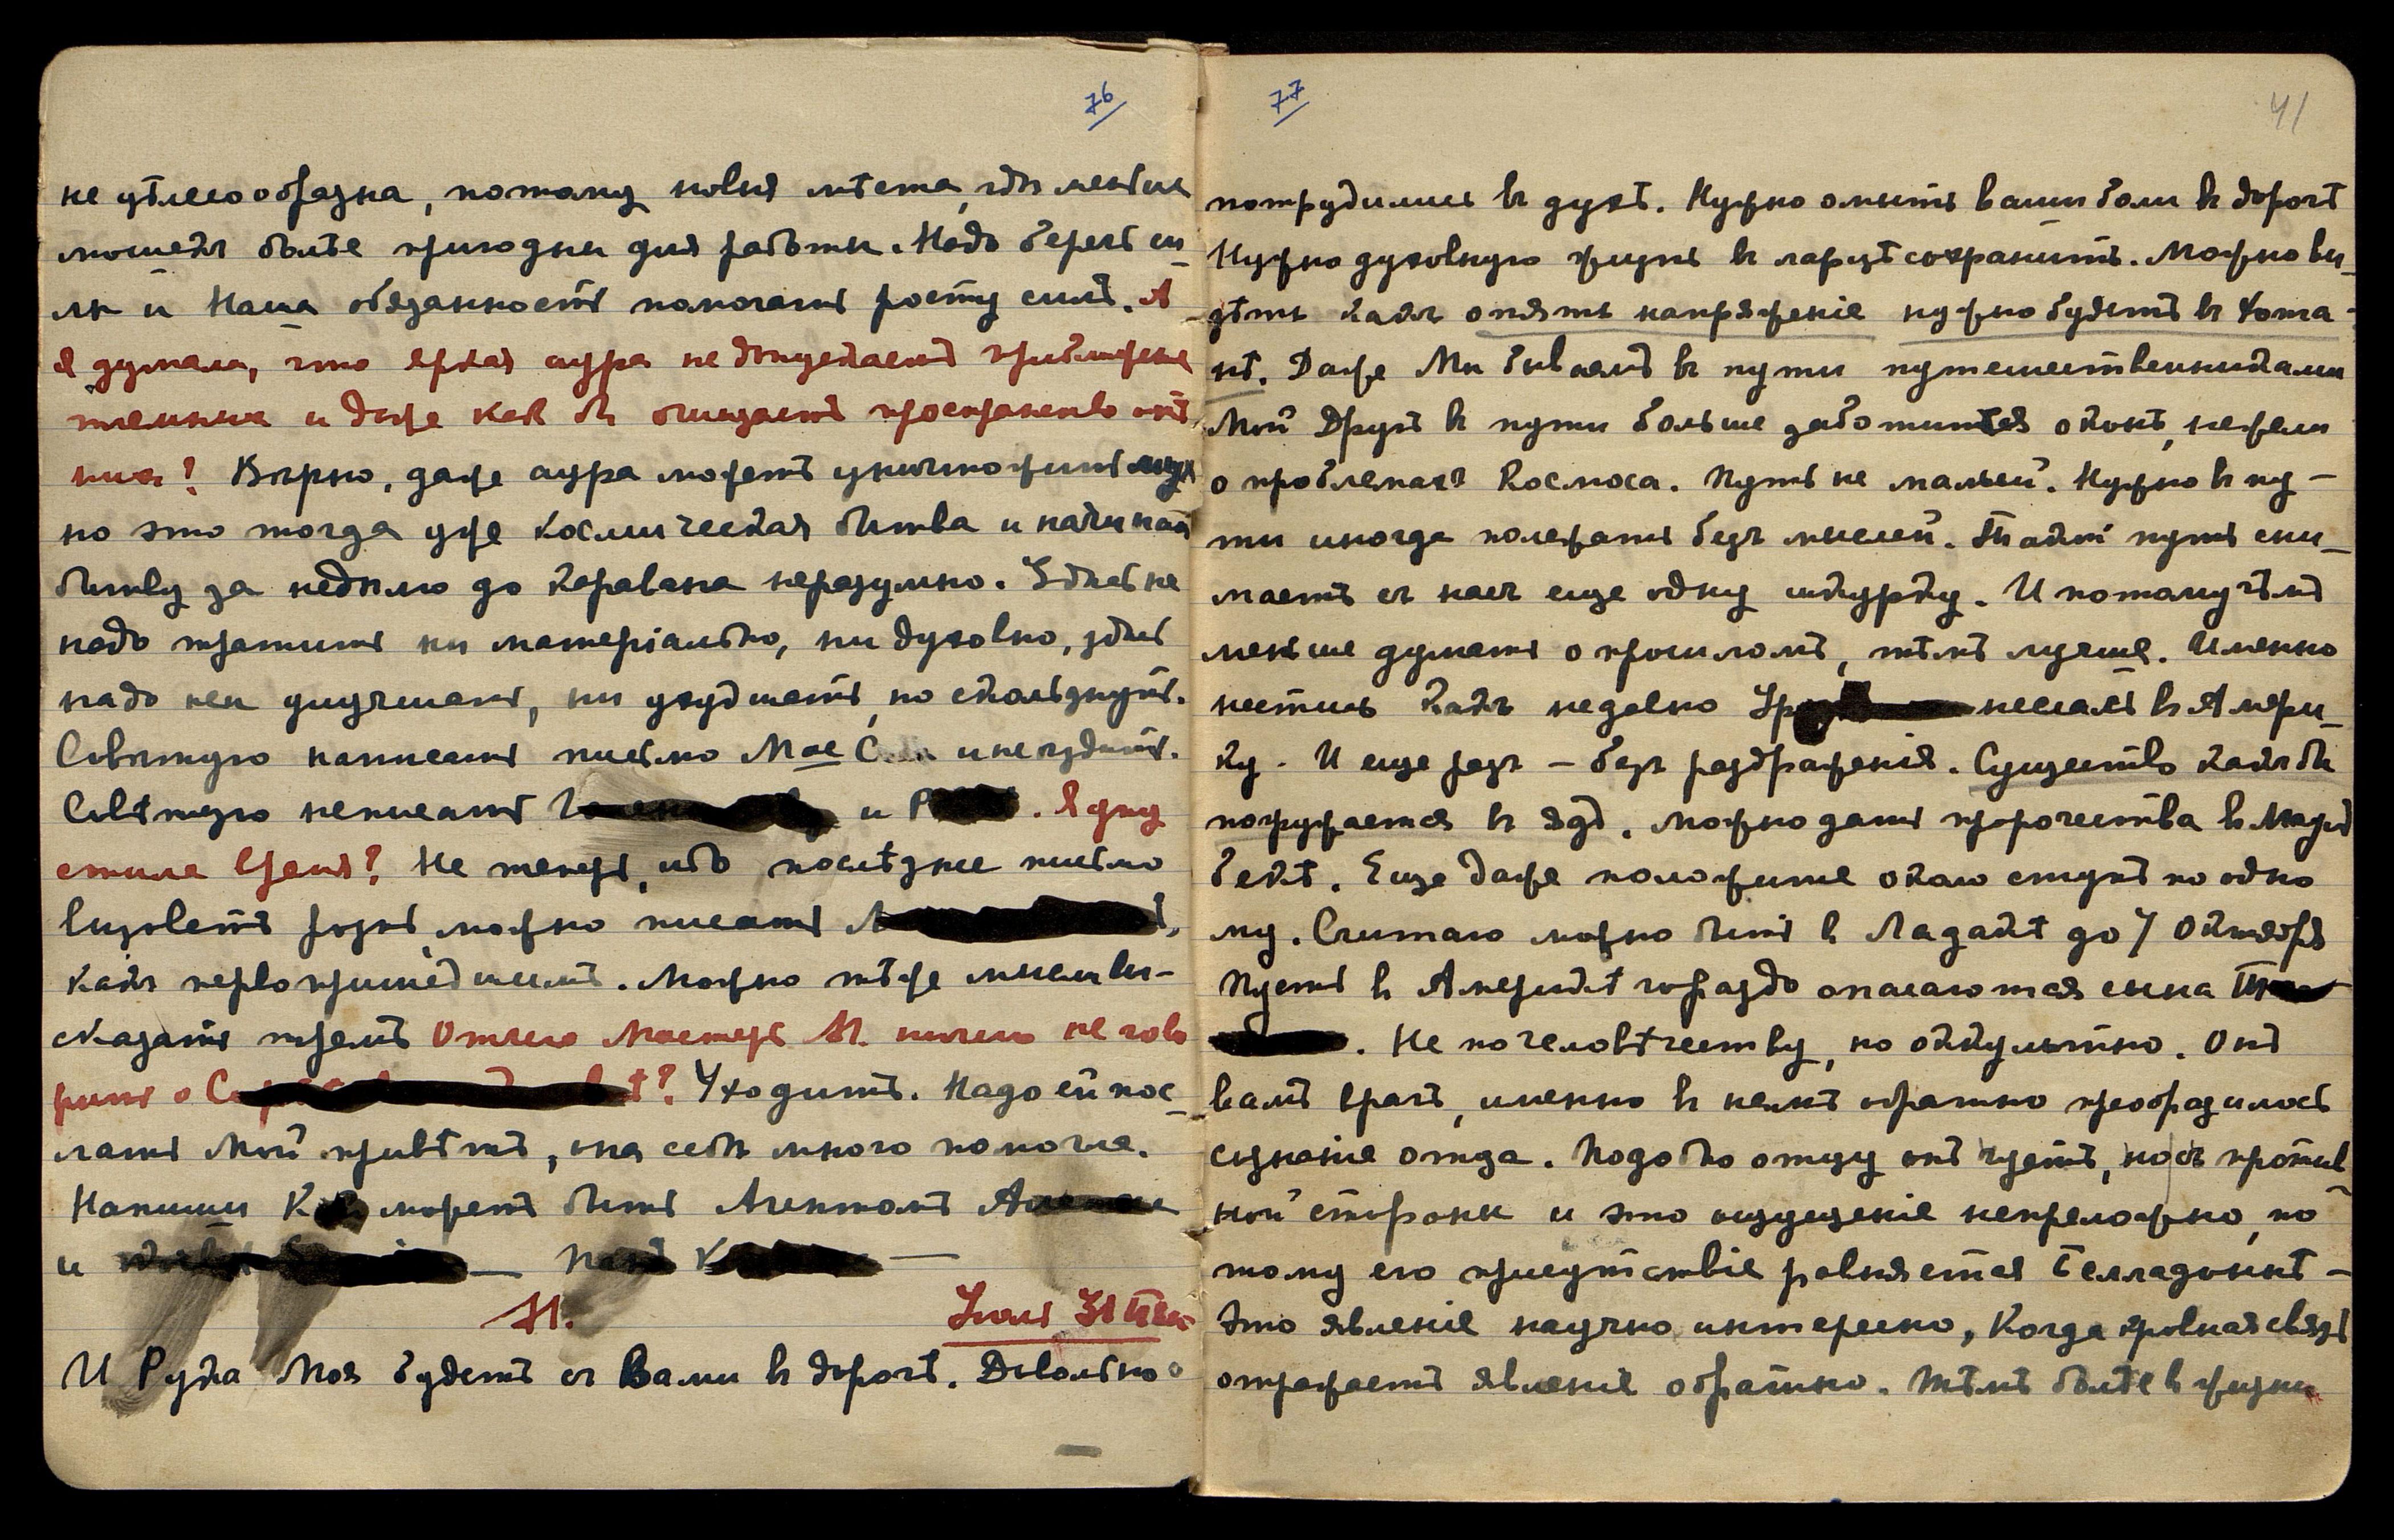 76
не цѣлесообразна, потому новыя мѣста, гдѣ меньше
мошекъ болѣе пригодны для работы. Надо беречь си-
лы и Наша обязанность помогать росту силъ. А
я думала, что яркая аура не допускаетъ приближенья
темныхъ и даже какъ бы очищаетъ пространство отъ
нихъ? Вѣрно, даже аура можетъ уничтожить
но это тогда уже космическая битва и начинать
битву за недѣлю до каравана неразумно. Здѣсь не
надо тратить ни матеріально, ни духовно, здѣсь
надо ни улучшать, ни ухудшать, но скользнуть.
Совѣтую написать письмо и не ждать.
Совѣтую написать и Р . Я упу
стила время? Не теперь, ибо послѣднее письмо
вызоветъ можно писать
какъ первопришедшимъ. Можно тѣже мысли вы-
сказать тремъ Отчего Мастеръ М. ничего не гово
ритъ о С ? Уходитъ. Надо ей пос-
лать Мой привѣтъ, она себѣ много помогла.
Напиши К можетъ быть Агентомъ
и —
М. Іюля 31
И Рука Моя будетъ съ Вами въ дорогѣ. Довольно
77
41
потрудились въ духѣ. Нужно омыть ваши боли въ дорогѣ
Нужно духовную жизнь въ ларцѣ сохранить. Можно ви-
дѣть какъ опять напряженіе нужно будетъ въ Хота-
нѣ. Даже Мы бываемъ въ пути путешественниками
Мой Другъ въ пути больше заботится о конѣ, нежели
о проблемахъ Космоса. Путь не малый. Нужно въ пу-
ти иногда полежать безъ мыслей. Такой путь сни-
маетъ съ насъ еще одну шкурку. И потому чѣмъ
меньше думать о прошломъ, тѣмъ лучше. Именно
нестись какъ недавно несласъ въ Амери-
ку. И еще разъ — безъ раздраженія. Существо какъ бы
погружается въ ядъ. Можно дать пророчества въ
бекѣ. Еще даже положите около ступъ по одно
му. Считаю можно быть въ Ладакѣ до 7 Октября
Пусть въ Америкѣ гораздо опасаются сына
. Не по человѣчеству, но оккультно. Онъ
вамъ врагъ, именно въ немъ обратно преобразилось
сознаніе отца. Подобно отцу онъ чуетъ, но съ против
ной стороны и это ощущеніе непреложно, по
тому его присутствіе равняется Белладоннѣ —
Это явленіе научно интересно, когда кровная связь
отражаетъ явленіе обратно. Тѣмъ болѣе въ жизни